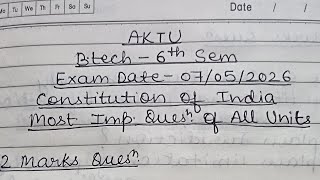 Mo Tu We Th Fr Sa Su
Date / /
AKTU
Btech - 6th Sem
Exam Date - 07/05/2026
Constitution of India
Most Imp. Quesn of All Units
2 Marks Quesn